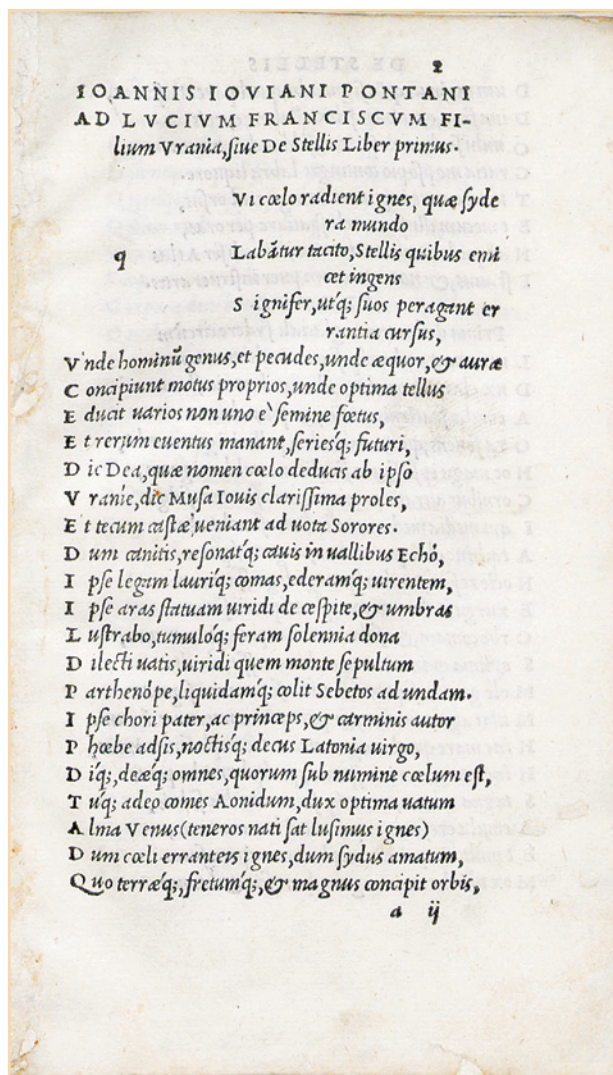 2
IOANNIS IOVIANI PONTANI
AD LVCIVM FRANCISCVM FI-
lium Vrania, siue De Stellis Liber primus.
q Vi cœlo radient ignes, quæ syde
ra mundo
Labãtur tacito, Stellis quibus emi
cet ingens
S ignifer, utq; suos peragant er
rantia cursus,
V nde hominũ genus, et pecudes, unde æquor, & auræ
C oncipiunt motus proprios, unde optima tellus
E ducit uarios non uno è semine fœtus,
E t rerum euentus manant, seriesq; futuri,
D ic Dea, quæ nomen cœlo deducis ab ipso
V ranie, dic Musa Iouis clarissima proles,
E t tecum castæ ueniant ad uota Sorores.
D um canitis, resonatq; cauis in uallibus Echó,
I pse legam lauriq; comas, ederamq; uirentem,
I pse aras statuam uiridi de cespite, & umbras
L ustrabo, tumulóq; feram solennia dona
D ilecti uatis, uiridi quem monte sepultum
P arthenópe, liquidamq; colit Sebetos ad undam.
I pse chori pater, ac princeps, & carminis autor
P hœbe adsis, noctisq; decus Latonia uirgo,
D iq; deæq; omnes, quorum sub numine cœlum est,
T uq; adeo comes Aonidum, dux optima uatum
A lma Venus (teneros nati sat lusimus ignes)
D um cœli erranteis ignes, dum sydus amatum,
Q uo terræq;, fretumq;, & magnus concipit orbis,
a ij